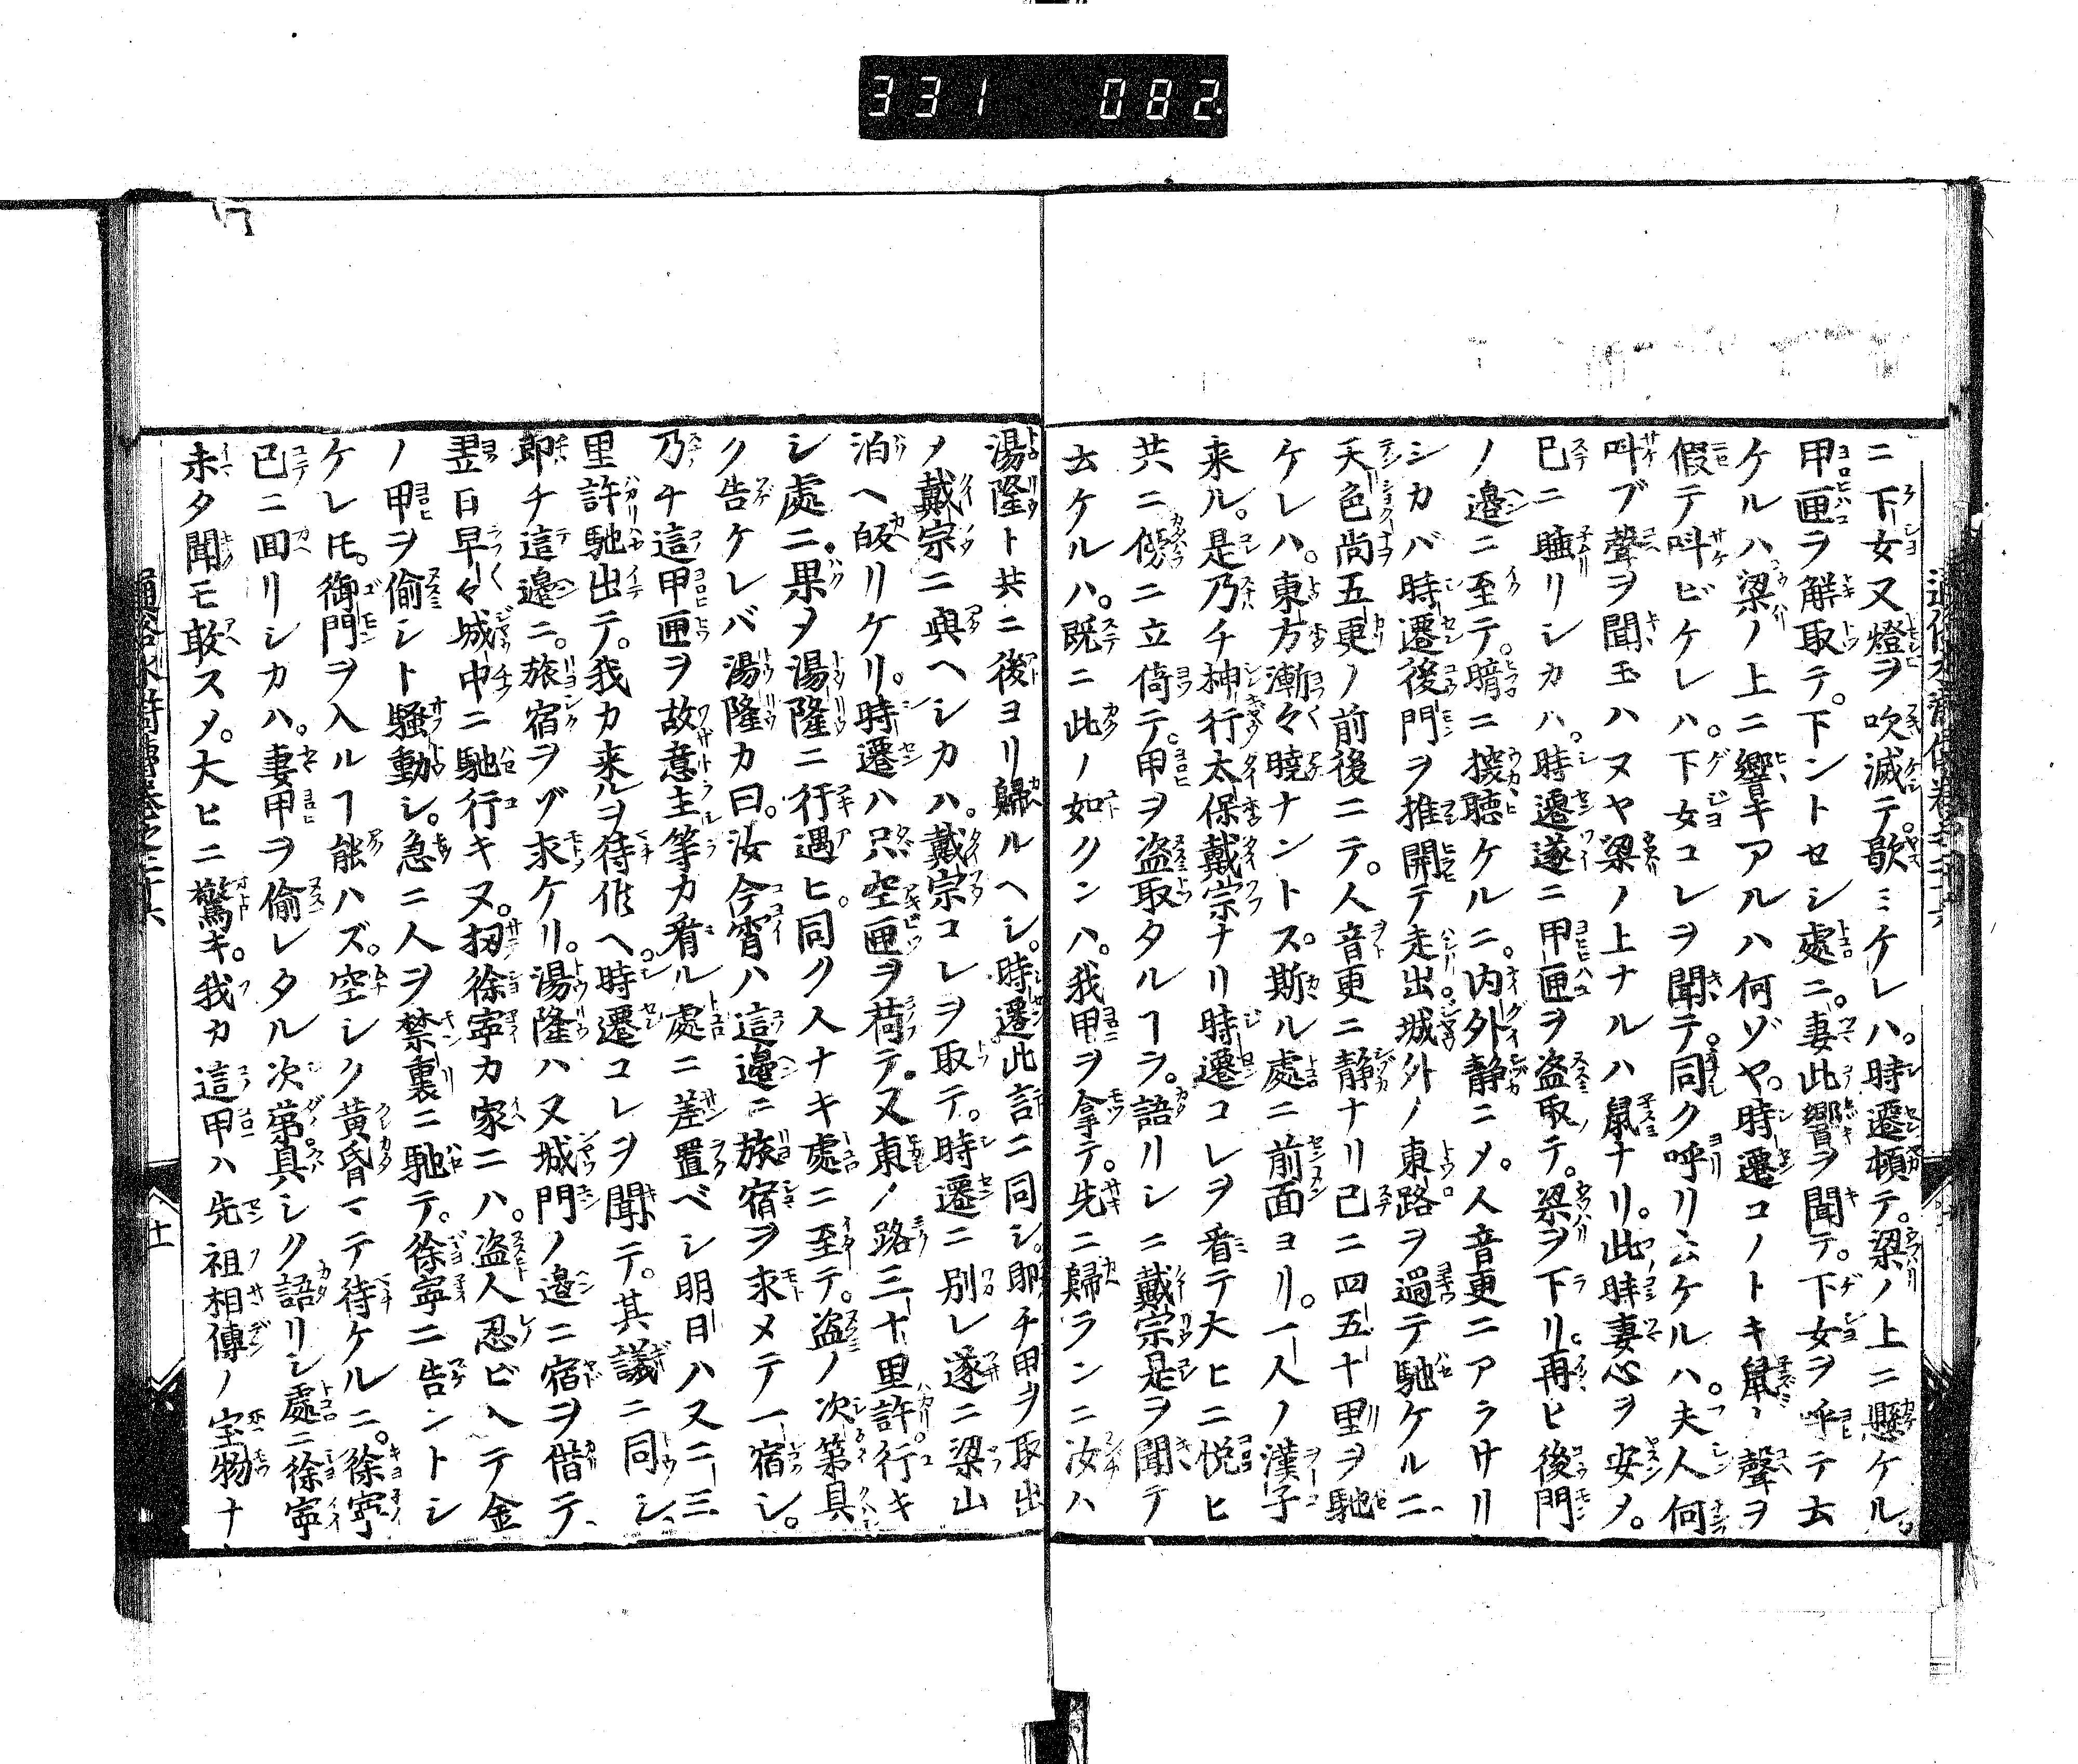 331 082.
ニ下女又燈ヲ吹滅テ。歇ミケレハ。時遷頓テ。梁ノ上ニ懸ケル。
甲匣ヲ解取テ。下ントセシ處ニ。妻此響ヲ聞テ。下女ヲ呼テ云
ケルハ梁ノ上ニ響キアルハ何ゾヤ。時遷コノトキ鼠ノ聲ヲ
假テ呌ビケレハ。下女コレヲ聞テ。同ク呼リ云ケルハ。夫人何
呌ブ聲ヲ聞玉ハヌヤ梁ノ上ナルハ鼠ナリ。此時妻心ヲ安メ。
已ニ睡リシカハ。時遷遂ニ甲匣ヲ盗取テ。梁ヲ下リ。再ヒ後門
ノ邉ニ至テ。暗ニ聴ケルニ。内外静ニメ。人音更ニアラサリ
シカバ時遷後門ヲ推開テ走出。城外ノ東路ヲ過テ馳ケルニ
天色尚五更ノ前後ニテ。人音更ニ静ナリ已ニ四五十里ヲ馳
ケレハ。東方漸々曉ナントス。斯ル處ニ前面ヨリ。一人ノ漢子
来ル。是乃チ神行太保戴宗ナリ時遷コレヲ看テ大ヒニ悦ヒ
共ニ傍ニ立倚テ。甲ヲ盗取タルヿヲ。語リシニ戴宗是ヲ聞テ
去ケルハ。既ニ此ノ如クンハ。我甲ヲ拿テ。先ニ歸ランニ汝ハ
湯隆ト共ニ後ヨリ歸ルヘシ。時遷此言ニ同シ。即チ甲ヲ取出
ノ戴宗ニ與ヘシカハ。戴宗コレヲ取テ。時遷ニ別レ遂ニ梁山
泊ヘ皈リケリ。時遷ハ只空匣ヲ荷テ。又東ノ路三十里許行キ
シ處ニ。果ヲ湯隆ニ行遇ヒ。同ク人ナキ處ニ至テ。盗ノ次第具
ク告ケレバ湯隆カ曰。汝今宵ハ這邉ニ旅宿ヲ求メテ一宿シ。
乃チ這甲匣ヲ故意主等カ看ル處ニ差置ベシ明日ハ又ニ三
里許馳出テ。我カ来ルヲ待候ヘ。時遷コレヲ聞テ。其議ニ同シ
即チ這邉ニ。旅宿ヲゾ求ケリ。湯隆ハ又城門ノ邉ニ宿ヲ借テ
翌日早々城中ニ馳行キヌ。扨徐寧カ家ニハ。盗人忍ビ入テ金
ノ甲ヲ偷シト騒動シ。急ニ人ヲ禁裏ニ馳テ。徐寧ニ告ントシ
ケレ𪜈。御門ヲ入ルヿ能ハズ。空シク黄昏マテ待ケルニ。徐寧
已ニ回リシカハ。妻甲ヲ偷レタル次第具シク語リシ處ニ徐寧
未タ聞モ敢スメ。大ヒニ驚キ。我カ這甲ハ先祖相傳ノ宝物ナ
十